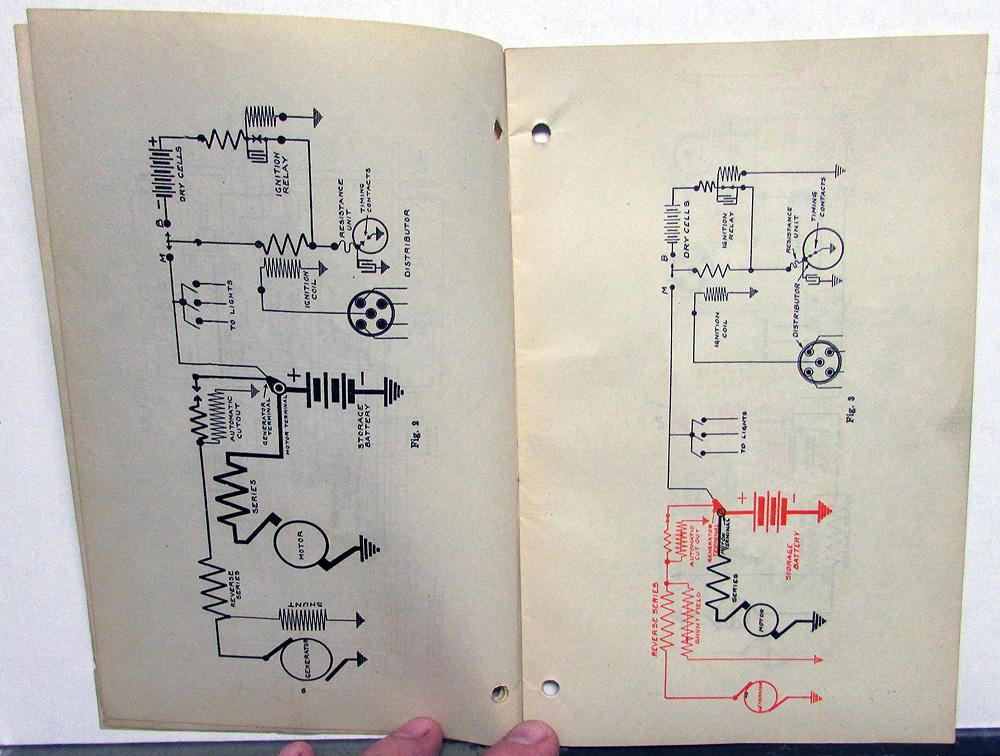 +
DRY CELLS
-
B
M
IGNITION
RELAY
RESISTANCE
UNIT
TIMING
CONTACTS
IGNITION
COIL
DISTRIBUTOR
TO LIGHTS
AUTOMATIC
CUTOUT
GENERATOR
TERMINAL
MOTOR TERMINAL
+
-
STORAGE
BATTERY
Fig. 2
SERIES
MOTOR
REVERSE
SERIES
SHUNT
GENERATOR
6
DRY CELLS
B
M
IGNITION
RELAY
RESISTANCE
UNIT
TIMING
CONTACTS
IGNITION
COIL
DISTRIBUTOR
Fig. 3
TO LIGHTS
AUTOMATIC
CUT OUT
GENERATOR
TERMINAL
MOTOR
TERMINAL
+
-
STORAGE
BATTERY
SERIES
MOTOR
REVERSE SERIES
SHUNT FIELD
GENERATOR